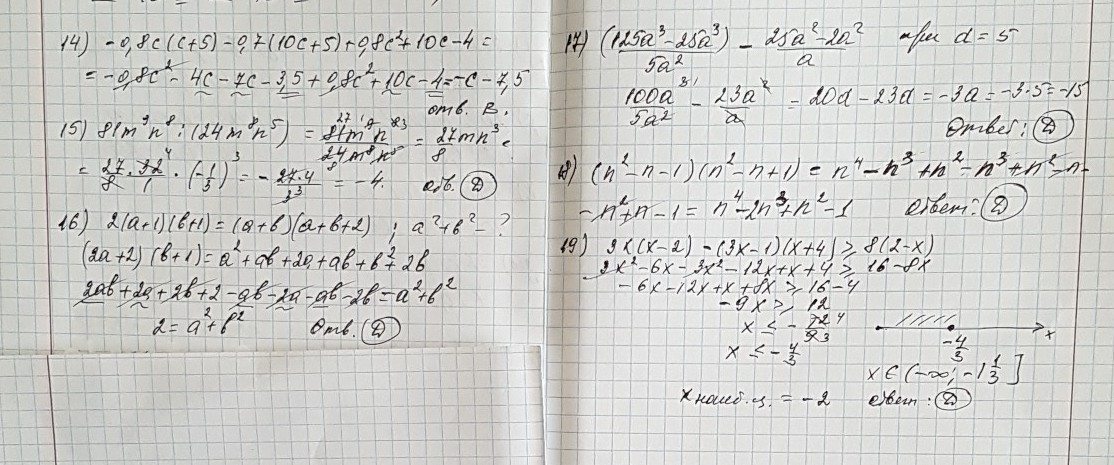 14) -0,8c(c+5) - 0,7(10c+5) + 0,8c² + 10c - 4 =
= -0,8c² - 4c - 7c - 3,5 + 0,8c² + 10c - 4 = -c - 7,5
отв. В.
15) 81m⁹n⁸ : (24m⁸n⁵) = 81m⁹n⁸/24m⁸n⁵ = 27mn³/8 =
= 27·32/8·1 · (-1/3)³ = -27·4/3³ = -4. отв. Д
16) 2(a+1)(в+1) = (a+в)(a+в+2) ; a²+в² - ?
(2a+2)(в+1) = a² + aв + 2a + aв + в² + 2в
2aв + 2a + 2в + 2 - aв - 2a - aв - 2в = a² + в²
2 = a² + в² Отв. Д
17) (125a³ - 25a³)/5a² - 25a² - 2a²/a при a = 5
100a³/5a² - 23a²/a = 20a - 23a = -3a = -3·5 = -15
Ответ: Д
18) (n² - n - 1)(n² - n + 1) = n⁴ - n³ + n² - n³ + n² - n -
- n² + n - 1 = n⁴ - 2n³ + n² - 1 Ответ: Д
19) 3x(x-2) - (3x-1)(x+4) ≥ 8(2-x)
3x² - 6x - 3x² - 12x + x + 4 ≥ 16 - 8x
-6x - 12x + x + 8x ≥ 16 - 4
-9x ≥ 12
x ≤ -12 4/9 3
x ≤ -4/3
-4/3 x
x ∈ (-∞; -1 1/3]
x наиб. ц. = -2 ответ: Д